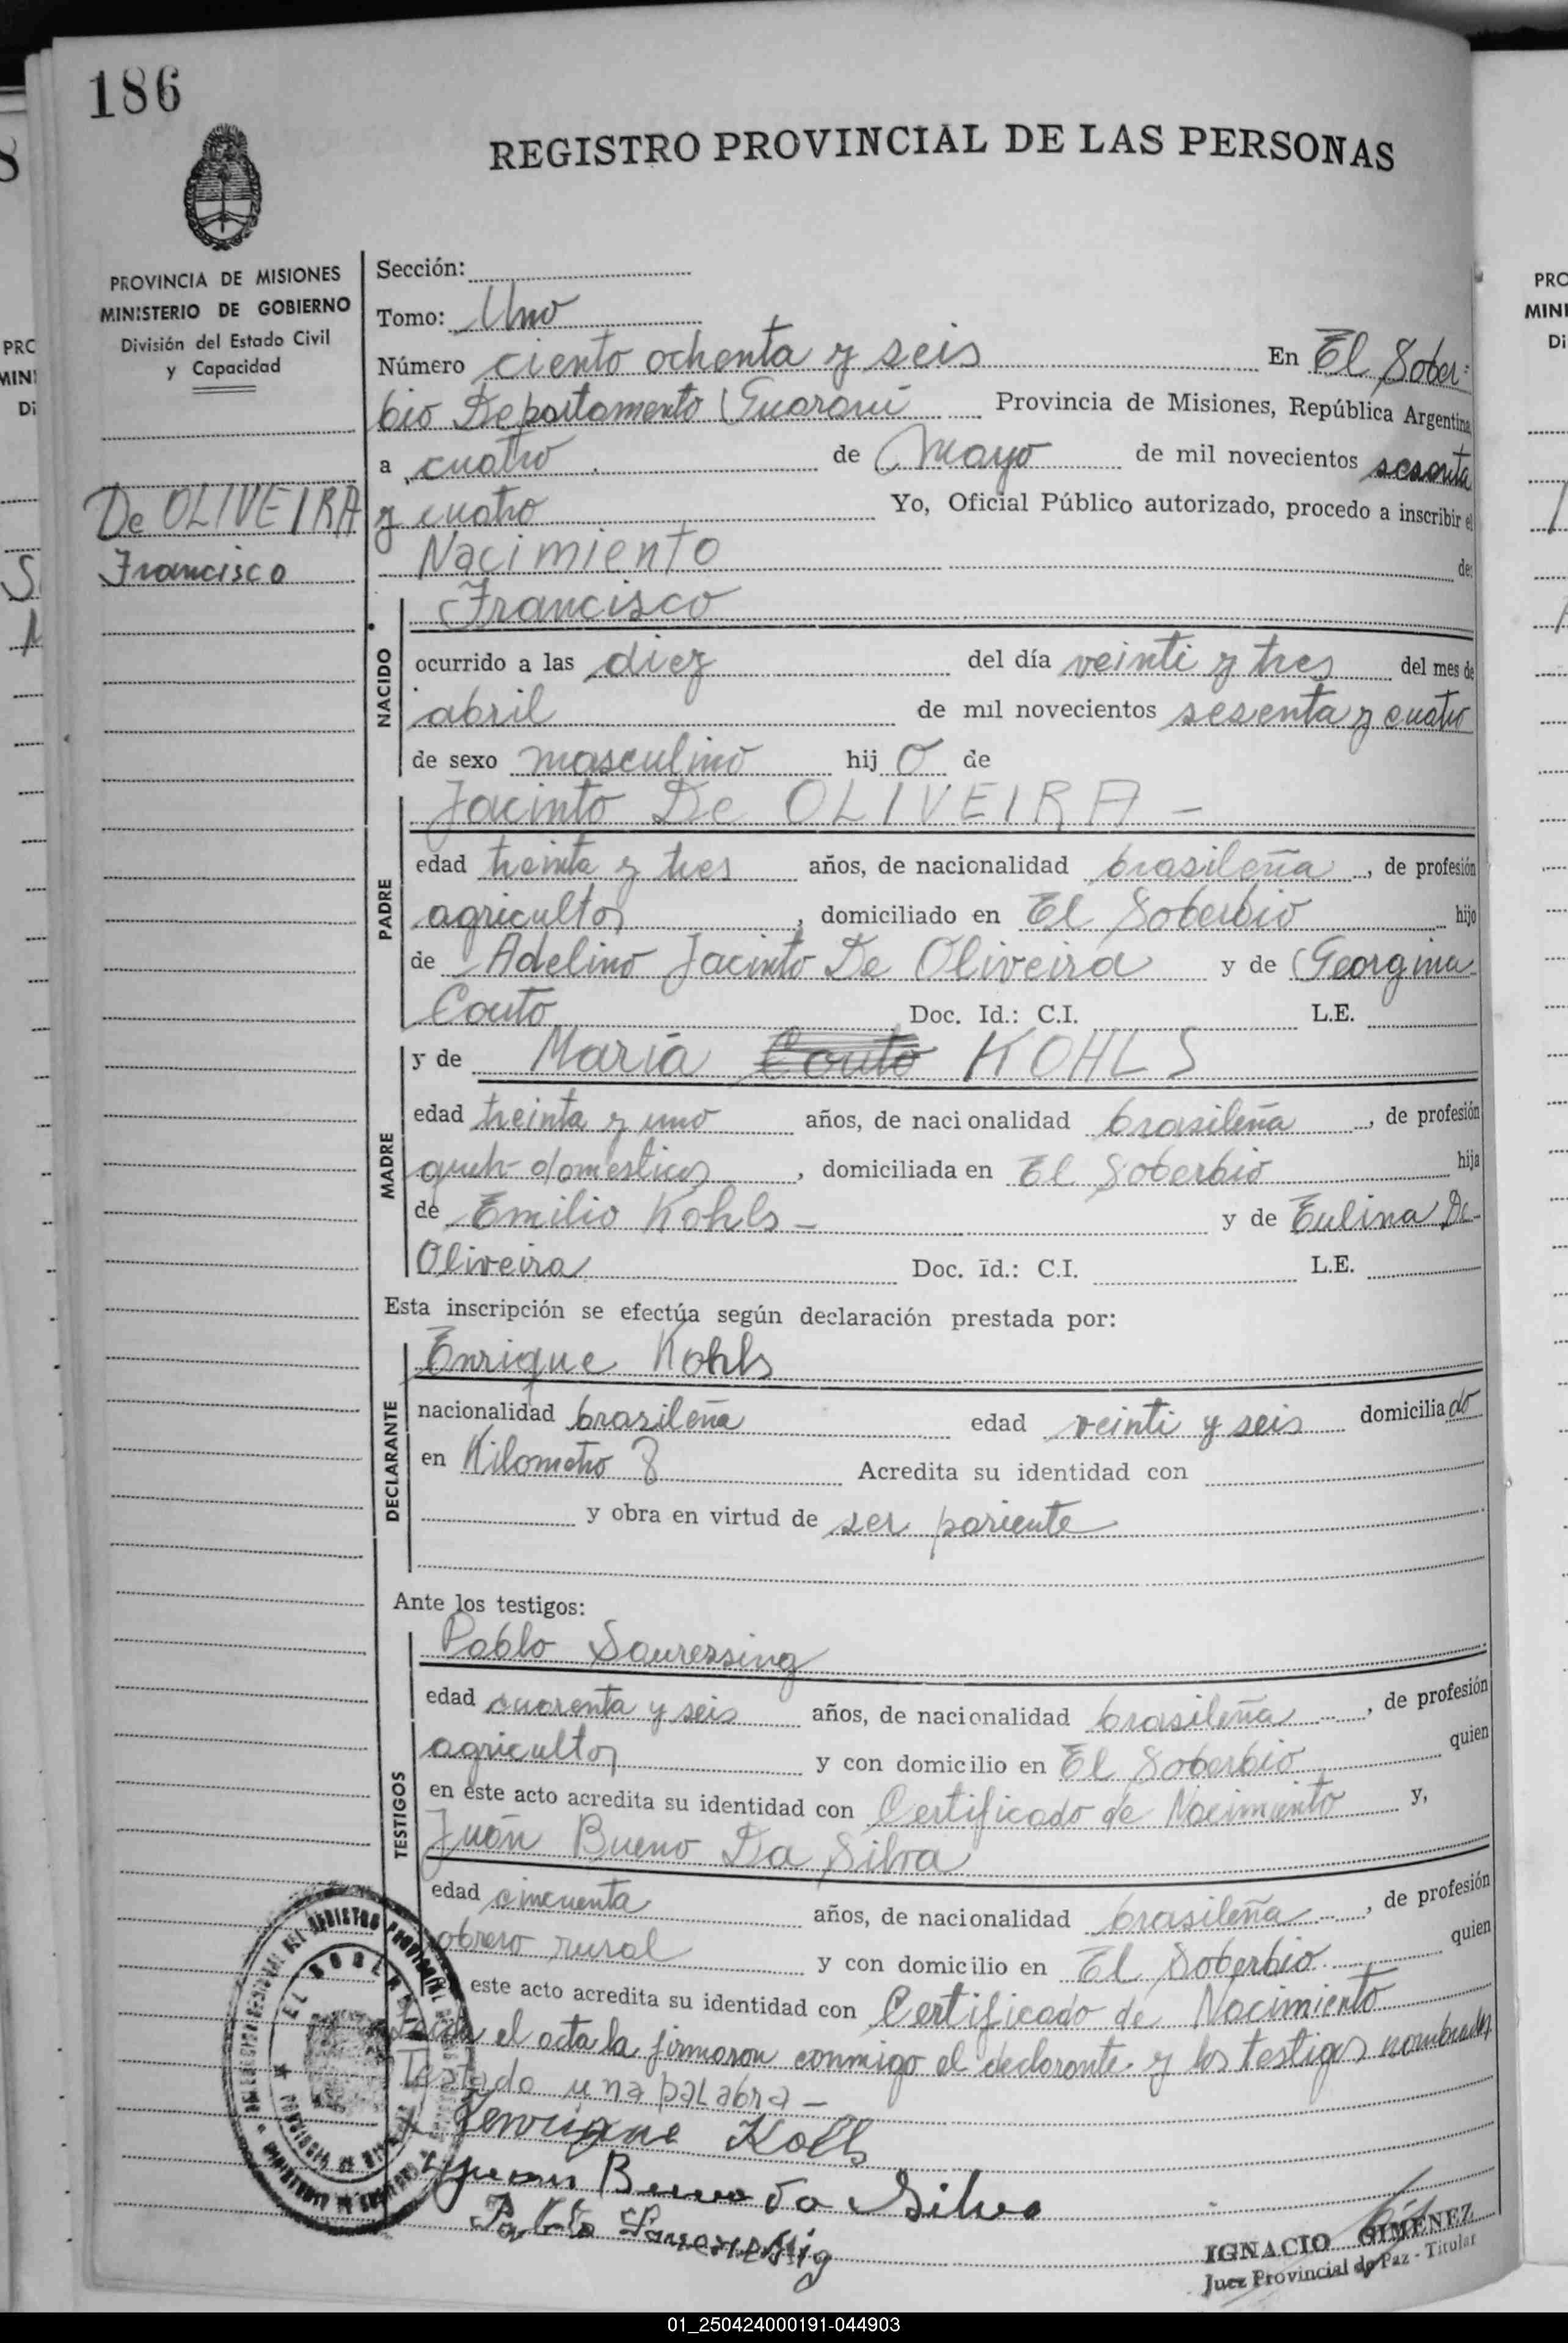 186
REGISTRO PROVINCIAL DE LAS PERSONAS
PROVINCIA DE MISIONES
MINISTERIO DE GOBIERNO
División del Estado Civil
y Capacidad
De OLIVEIRA
Francisco
Sección:
Tomo: Uno
Número ciento ochenta y seis En El Sober=
bio Departamento Guaraní Provincia de Misiones, República Argentina,
a cuatro de Mayo de mil novecientos sesenta
y cuatro Yo, Oficial Público autorizado, procedo a inscribir el
Nacimiento de:
NACIDO
Francisco
ocurrido a las diez del día veinti y tres del mes de
abril de mil novecientos sesenta y cuatro
de sexo masculino hij o de
PADRE
Jacinto De OLIVEIRA -
edad treinta y tres años, de nacionalidad brasileña, de profesión
agricultor, domiciliado en El Soberbio hijo
de Adelino Jacinto De Oliveira y de Georgina
Couto Doc. Id.: C.I. L.E.
MADRE
y de María Couto KOHLS
edad treinta y uno años, de nacionalidad brasileña, de profesión
domesticos, domiciliada en El Soberbio hija
de Emilio Kohls - y de Eulina De
Oliveira Doc. Id.: C.I. L.E.
Esta inscripción se efectúa según declaración prestada por:
DECLARANTE
Enrique Kohls
nacionalidad brasileña edad veinti y seis domiciliado
en Kilometro 8 Acredita su identidad con
y obra en virtud de ser pariente
Ante los testigos:
TESTIGOS
Pablo Sauressing
edad cuarenta y seis años, de nacionalidad brasileña, de profesión
agricultor y con domicilio en El Soberbio quien
en este acto acredita su identidad con Certificado de Nacimiento y,
Juan Bueno Da Silva
edad cincuenta años, de nacionalidad brasileña, de profesión
obrero rural y con domicilio en El Soberbio quien
este acto acredita su identidad con Certificado de Nacimiento
Leida el acta la firmaron conmigo el declarante y los testigos nombrados
Testado una palabra -
Henrique Kolls
Juan Bueno da Silva
Pablo
EL SOBERBIO
IGNACIO GIMENEZ
Juez Provincial de Paz - Titular
01_250424000191-044903